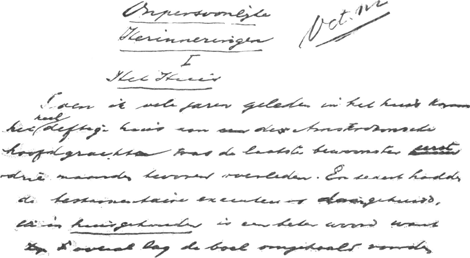 Onpersoonlijke
Herinneringen
I
Het Huis
Toen ik vele jaren geleden in het huis kwam
het heel deftige huis van een der Amsterdamsche
hoofdgrachten was de laatste bewoonster
drie maanden tevoren overleden. En sexert hadden
de testamentaire executeurs
huisgehouden is een beter woord want
overal lag de boel omgehaald zonder